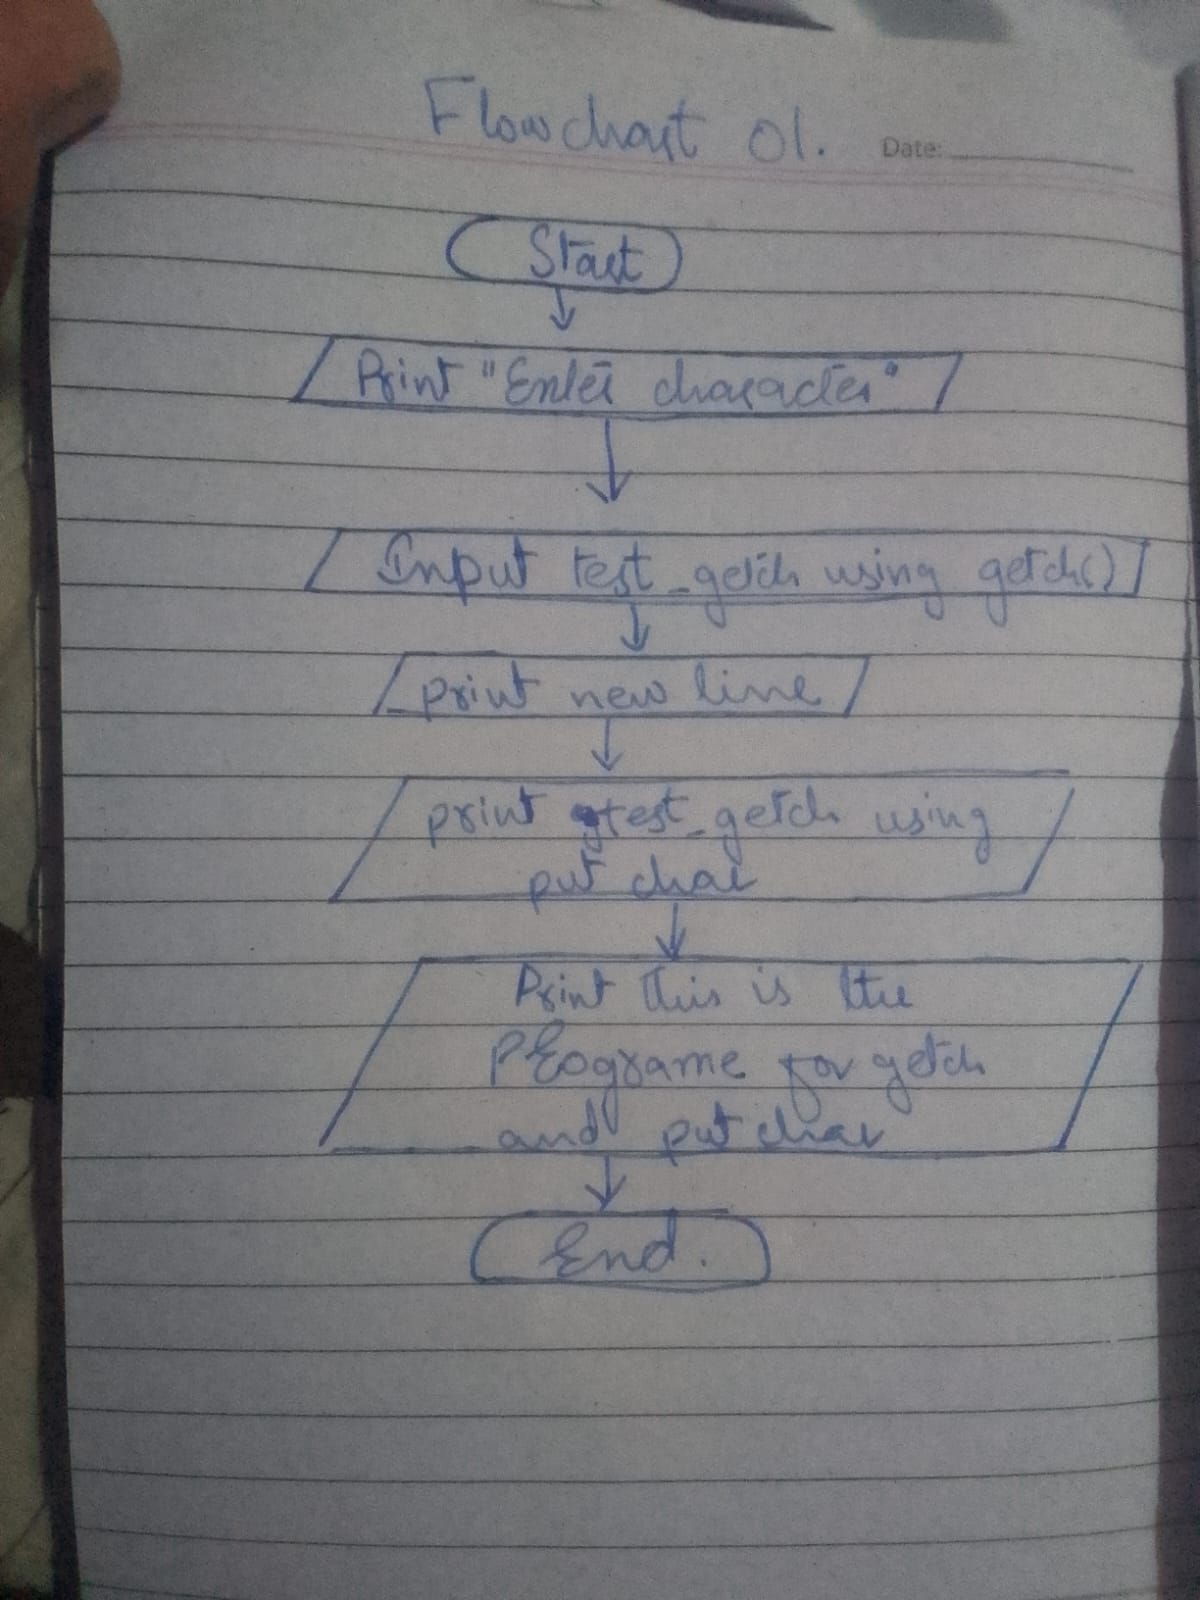 Flowchart 01.
Date:
Start
Print "Enter character"
Input test_getch using getch()
print new line
print test_getch using
put char
Print this is the
programe for getch
and put char
End.